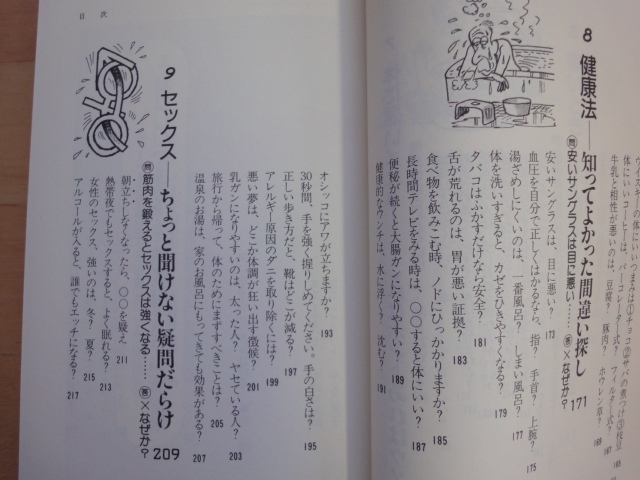 体にいいコーヒーは、パーコレーター式? フィルター式? 167
牛乳と相性が悪いのは、豆腐? 豚肉? ホウレン草? 169
8 健康法――知ってよかった間違い探し 171
問 安いサングラスは目に悪い…… 答 ×なぜか?
安いサングラスは、目に悪い? 173
血圧を自分で正しくはかるなら、指? 手首? 上腕? 175
湯ざめしにくいのは、一番風呂? しまい風呂? 177
体を洗いすぎると、カゼをひきやすくなる? 179
タバコはふかすだけなら安全? 181
舌が荒れるのは、胃が悪い証拠? 183
食べ物を飲みこむ時、ノドにひっかかりますか? 185
長時間テレビをみる時は、〇〇すると体にいい? 187
便秘が続くと大腸ガンになりやすい? 189
健康的なウンチは、水に浮く? 沈む? 191
目次
オシッコにアワが立ちますか? 193
30秒間、手を強く握りしめてください。手の白さは? 195
正しい歩き方だと、靴はどこが減る? 197
アレルギー原因のダニを取り除くには? 199
悪い夢は、どこか体調が狂い出す徴候? 201
乳ガンになりやすいのは、太った人? ヤセている人? 203
旅行から帰って、体のためにまずすべきことは? 205
温泉のお湯は、家のお風呂にもってきても効果がある? 207
9 セックス――ちょっと聞けない疑問だらけ 209
問 筋肉を鍛えるとセックスは強くなる…… 答 ×なぜか?
朝立ちしなくなったら、〇〇を疑え 211
熱帯夜でもセックスすると、よく眠れる? 213
女性のセックス、強いのは、冬? 夏? 215
アルコールが入ると、誰でもエッチになる? 217